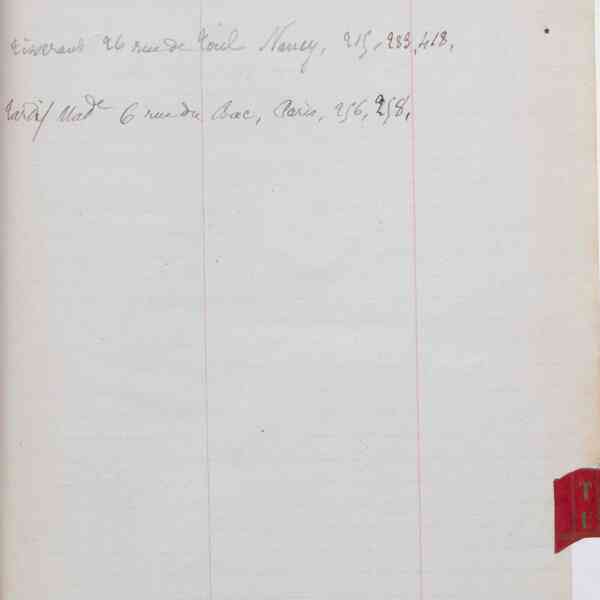 Tisserant 26 rue de Toul Nancy, 215, 283, 418,
Tardif Made 6 rue du Bac, Paris, 256, 258,
T